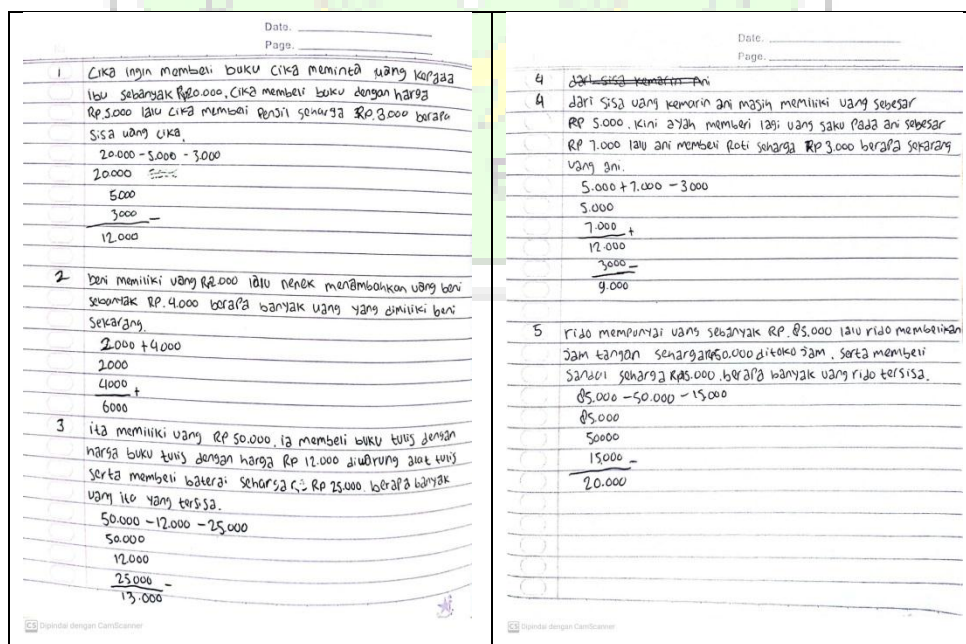 Date.
Page.
1 Cika ingin membeli buku Cika meminta uang kepada
ibu sebanyak Rp20.000, Cika membeli buku dengan harga
Rp.5.000 lalu Cika membeli Pensil seharga Rp.3.000 berapa
sisa uang cika.
20.000 - 5.000 - 3.000
20.000
5000
3000 -
12.000
2 beni memiliki uang Rp2.000 lalu nenek menambahkan uang beni
sebanyak RP. 4.000 berapa banyak uang yang dimiliki beni
sekarang.
2000 + 4000
2000
4000 +
6000
3 ita memiliki uang RP 50.000. ia membeli buku tulis dengan
harga buku tulis dengan harga Rp 12.000 diwarung alat tulis
serta membeli baterai seharga Rp 25.000. berapa banyak
uang ita yang tersisa.
50.000 - 12.000 - 25.000
50.000
12000
25000 -
13.000
CS Dipindai dengan CamScanner
Date.
Page.
4 dari sisa kemarin Ani
4 dari sisa uang kemarin ani masih memiliki uang sebesar
RP 5.000. Kini ayah memberi lagi uang saku Pada ani sebesar
RP 7.000 lalu ani membeli Roti seharga RP 3.000 berapa sekarang
uang ani.
5.000 + 7.000 - 3000
5.000
7.000 +
12.000
3000 -
9.000
5 rido mempunyai uang sebanyak RP. 85.000 lalu rido membelikan
jam tangan seharga Rp50.000 ditoko jam. serta membeli
Sandal seharga Rp15.000. berapa banyak uang rido tersisa.
85.000 - 50.000 - 15,000
85.000
50000
15,000 -
20.000
CS Dipindai dengan CamScanner